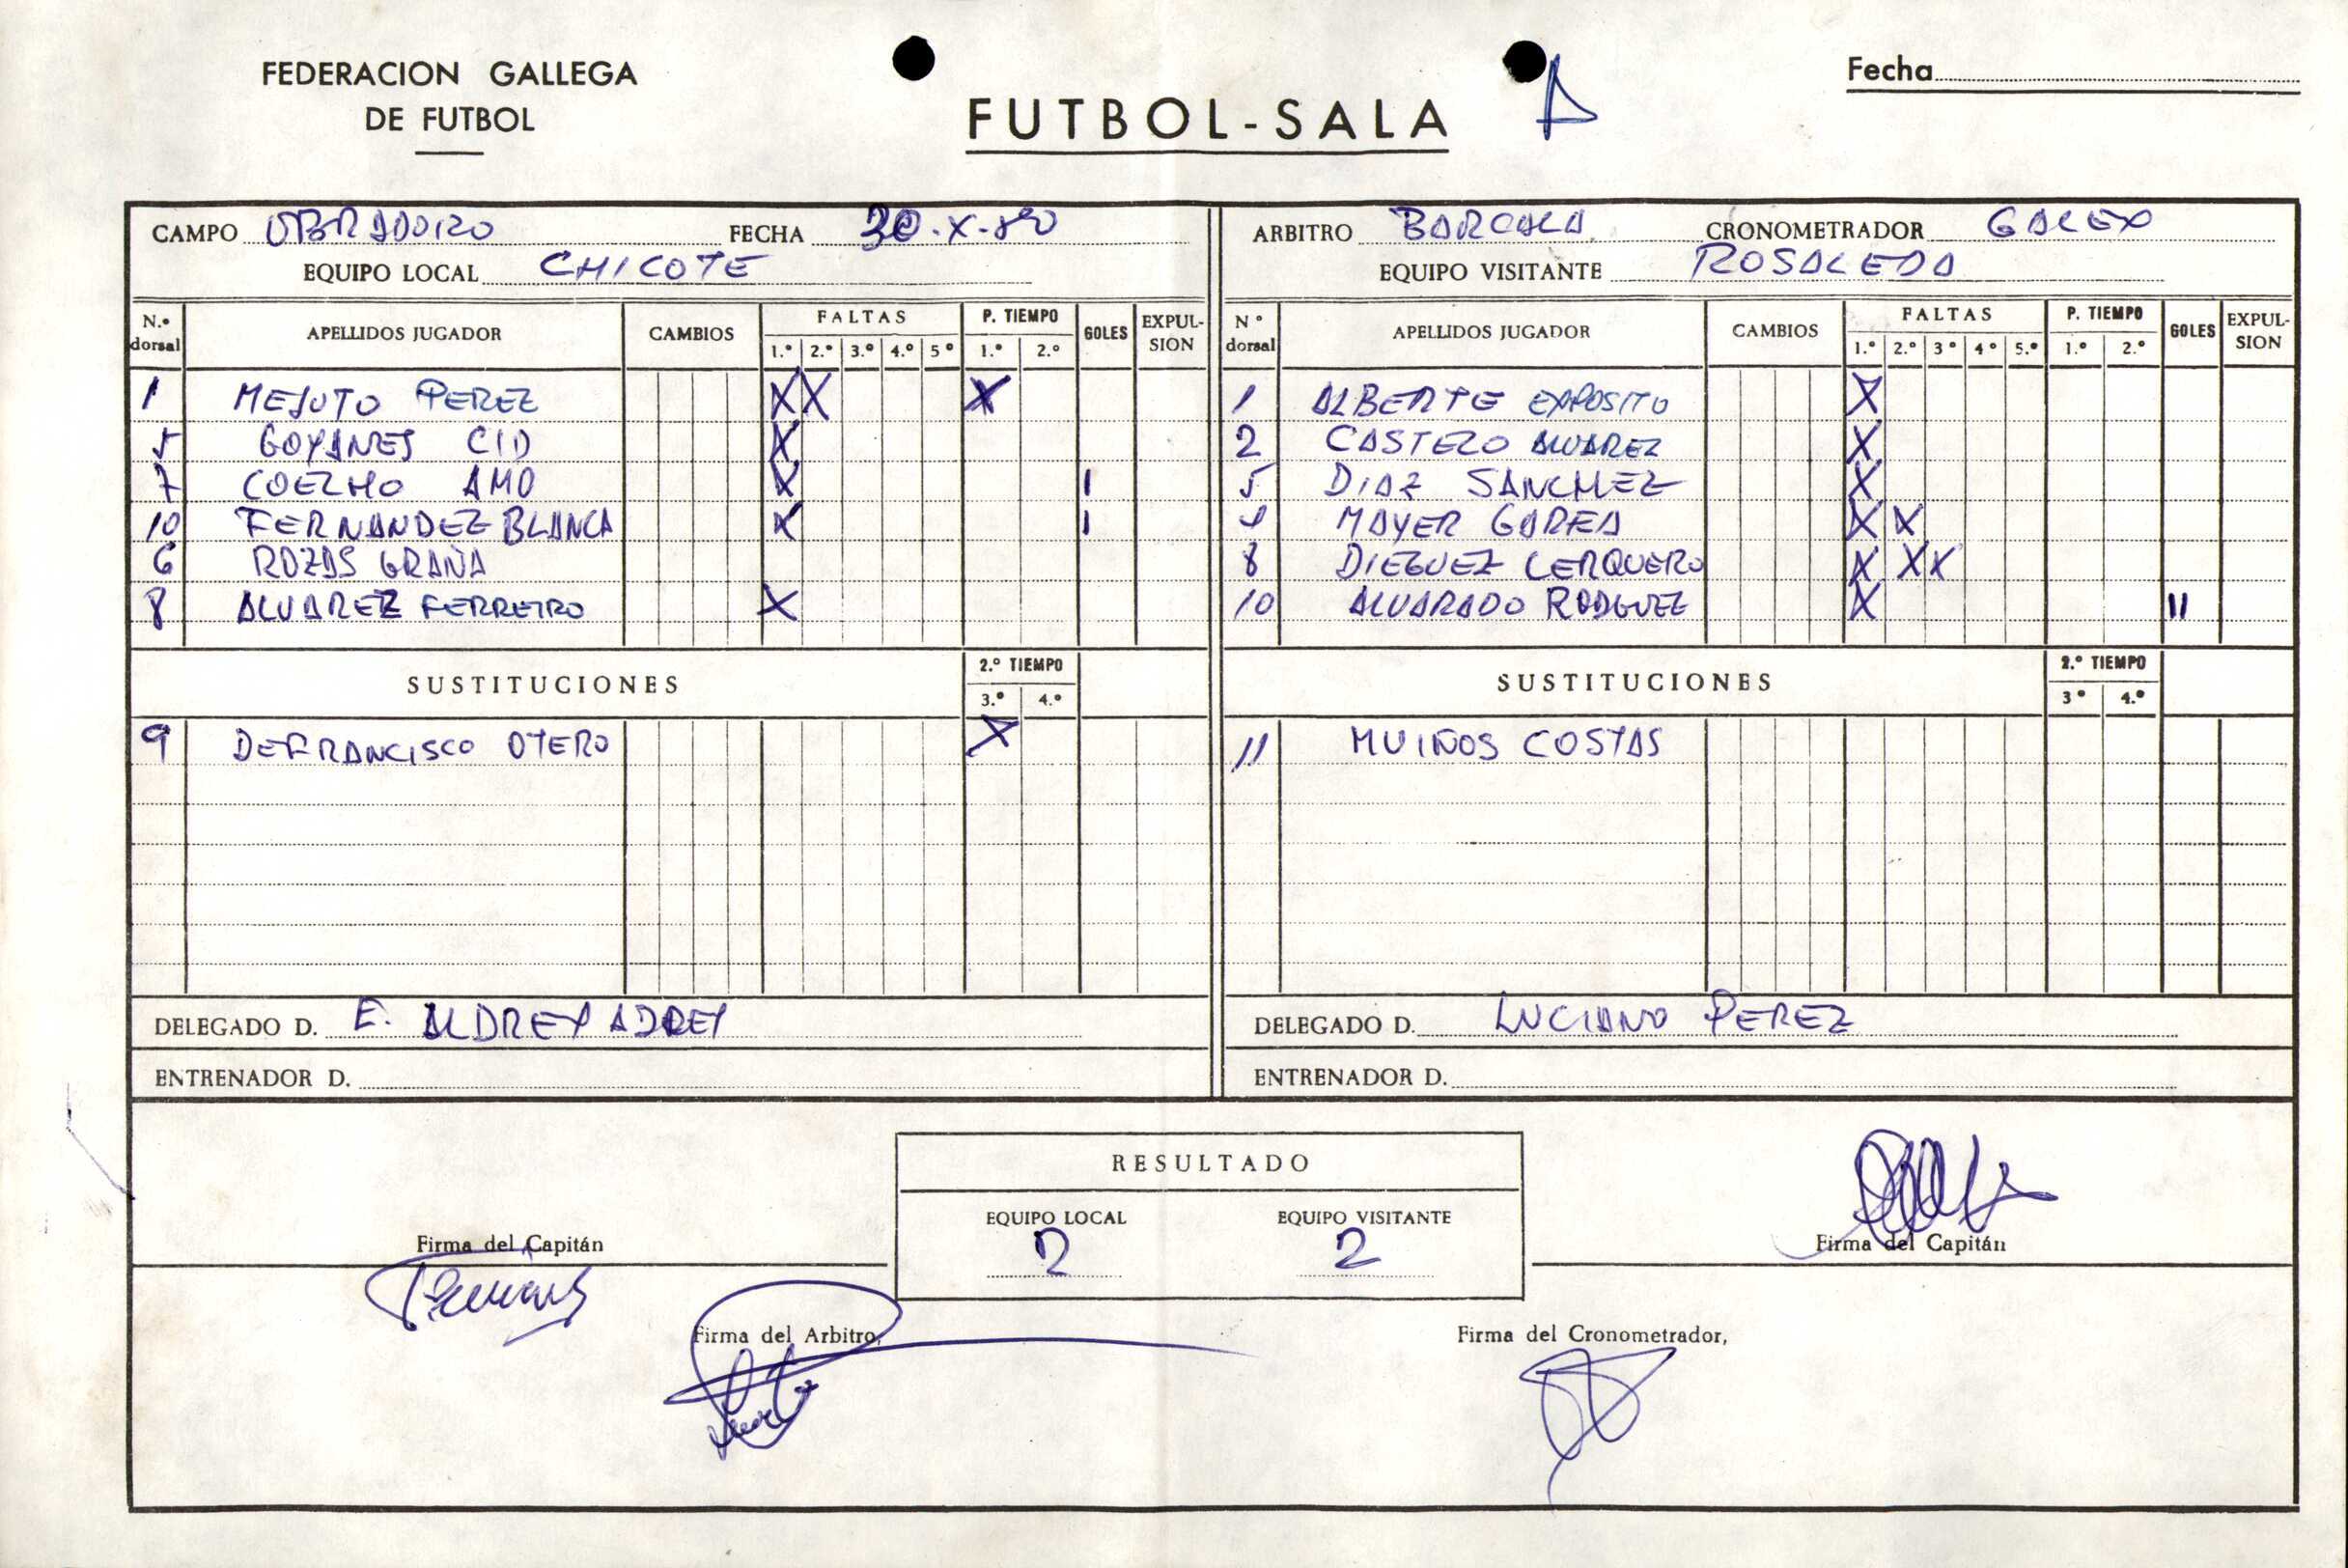 FEDERACION GALLEGA
DE FUTBOL
FUTBOL-SALA
Fecha
CAMPO OBRADOIRO FECHA 30-X-80
EQUIPO LOCAL CHICOTE
ARBITRO BARCALA CRONOMETRADOR GALEX
EQUIPO VISITANTE ROSALEDA
N.º dorsal APELLIDOS JUGADOR CAMBIOS FALTAS 1.º 2.º 3.º 4.º 5º P. TIEMPO 1.º 2.º GOLES EXPULSION
1 MEJUTO PEREZ X X X
5 GOYANES CID X
7 COELHO AMO X I
10 FERNANDEZ BLANCA X I
6 ROZAS GRAÑA
8 ALVAREZ FERREIRO X
SUSTITUCIONES 2.º TIEMPO 3.º 4.º
9 DEFRANCISCO OTERO X
DELEGADO D. E. ALDREY
ENTRENADOR D.
Nº dorsal APELLIDOS JUGADOR CAMBIOS FALTAS 1.º 2.º 3º 4º 5.º P. TIEMPO 1.º 2.º GOLES EXPULSION
1 ALBERTE EXPOSITO X
2 CASTELO ALVAREZ X
5 DIAZ SANCHEZ X
4 MAYER GAREA X X
8 DIEGUEZ CERQUERO X X X
10 ALVARADO RODGUEZ X II
SUSTITUCIONES 2.º TIEMPO 3º 4.º
11 MUIÑOS COSTAS
DELEGADO D. LUCIANO PEREZ
ENTRENADOR D.
RESULTADO
EQUIPO LOCAL EQUIPO VISITANTE
2 2
Firma del Capitán
Firma del Capitán
Firma del Arbitro,
Firma del Cronometrador,